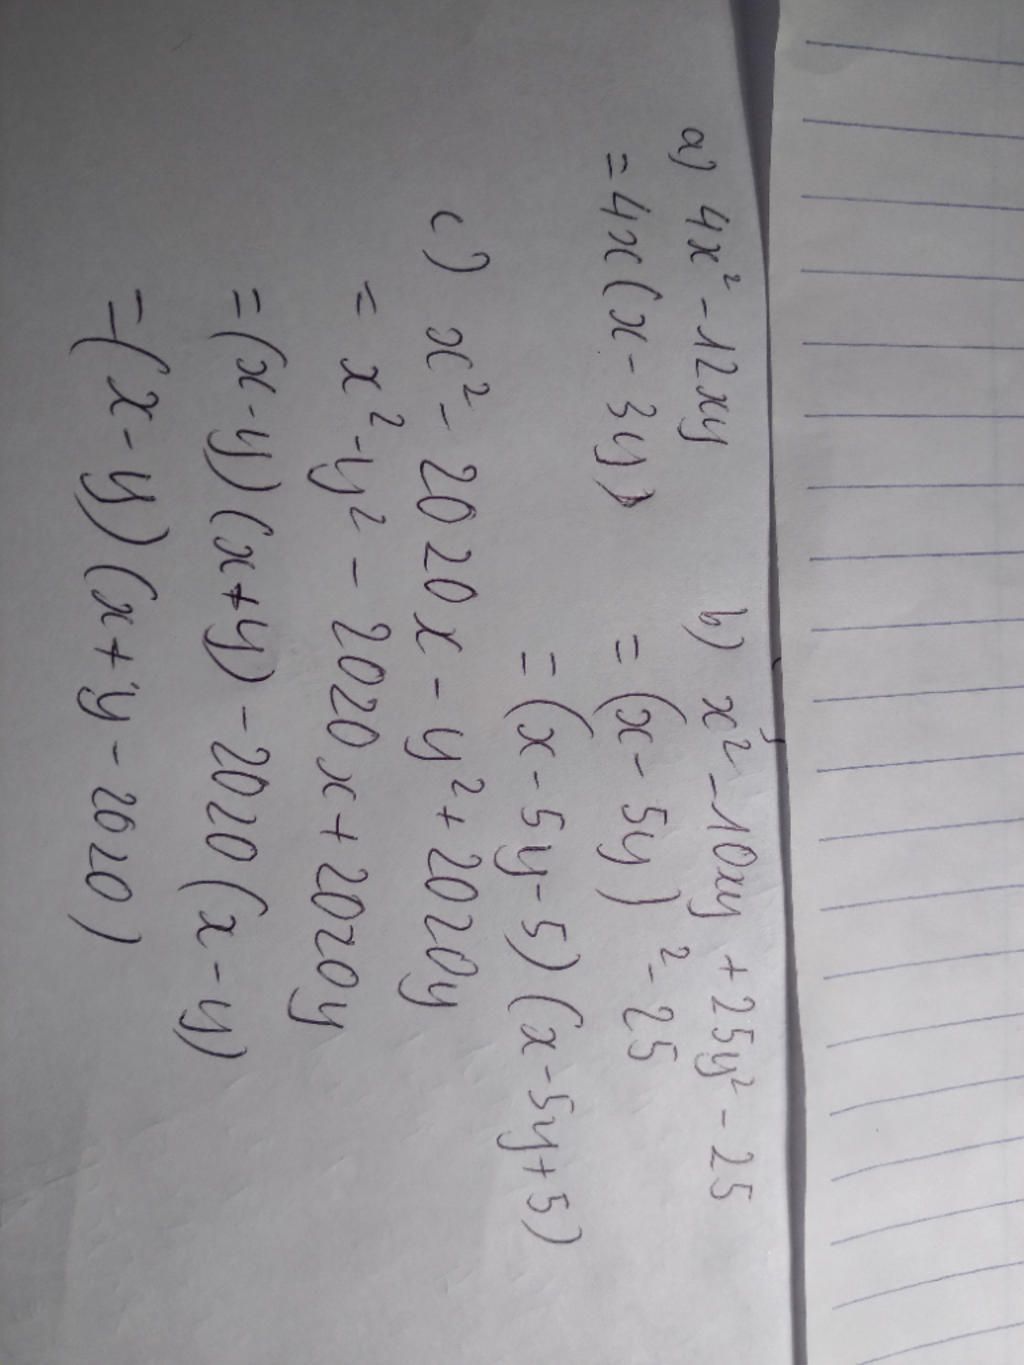 a) 4x² - 12xy
= 4x(x - 3y)
b) x² - 10xy + 25y² - 25
= (x - 5y)² - 25
= (x - 5y - 5) (x - 5y + 5)
c) x² - 2020x - y² + 2020y
= x² - y² - 2020x + 2020y
= (x - y) (x + y) - 2020 (x - y)
= (x - y) (x + y - 2020)